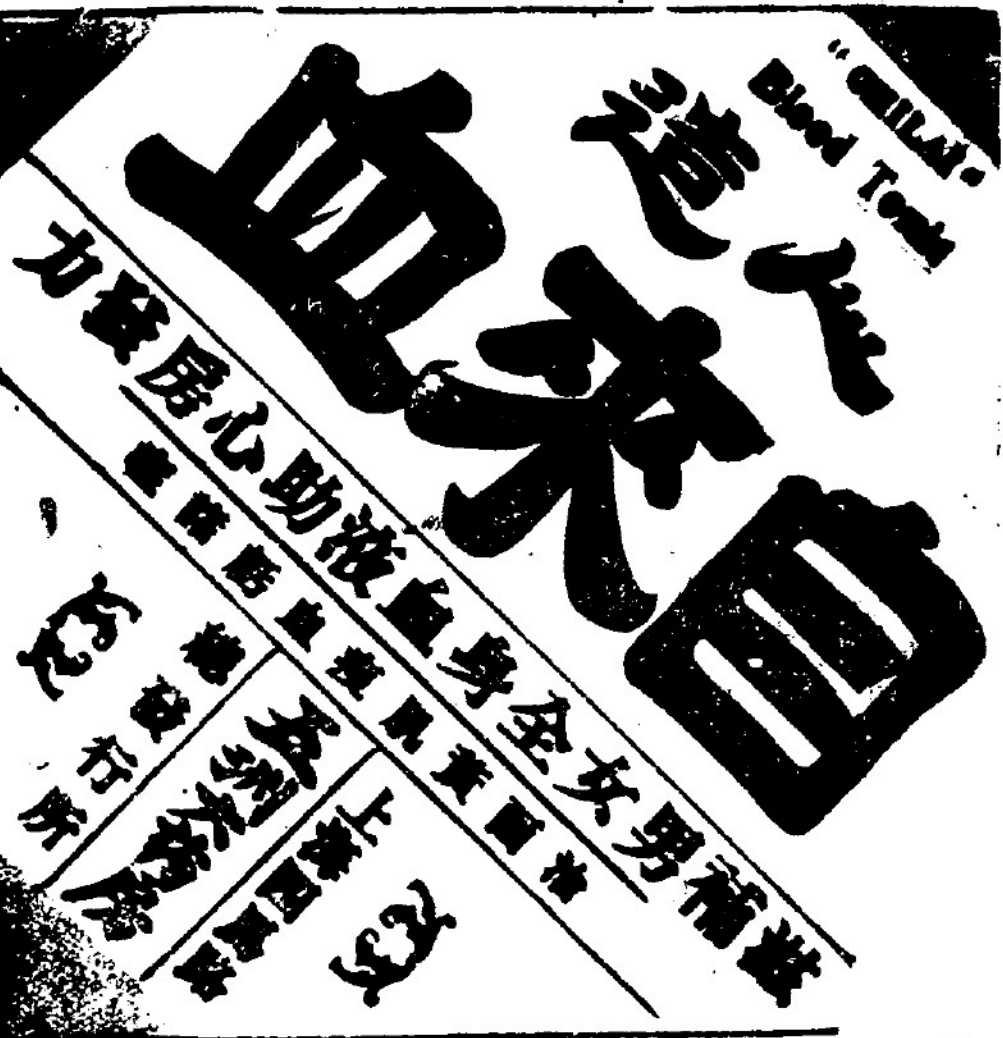 Blood Tonic
人造
自來血
滋補男女全身血液助心房發力
治面黃肌瘦血虧諸症
上海四馬路
五洲大藥房
總發行所